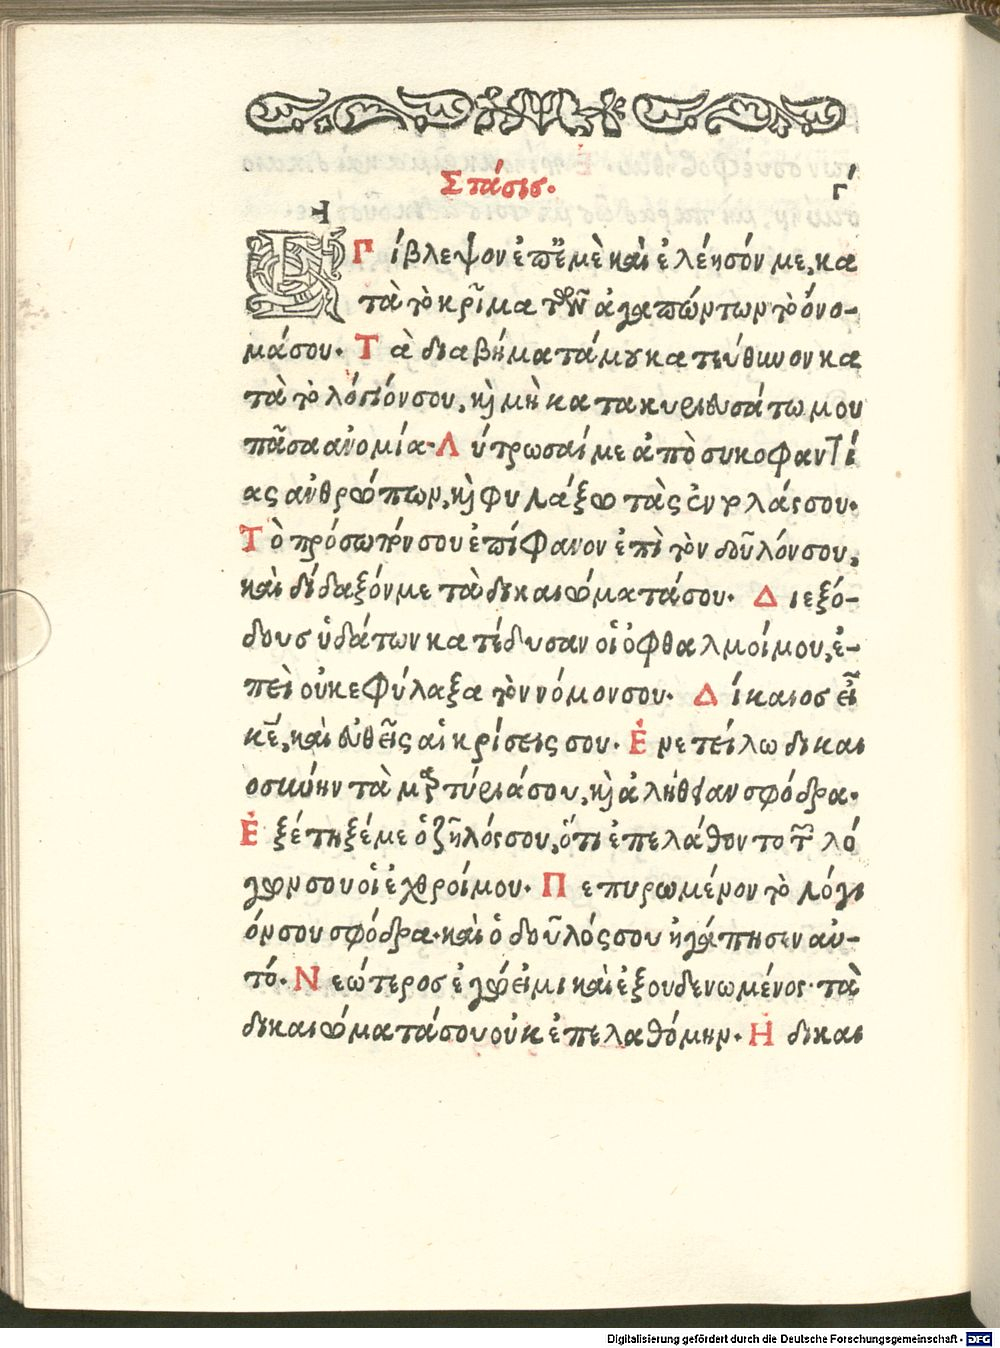 Στάσις. Γ΄
Ἐπίβλεψον ἐπ' ἐμὲ καὶ ἐλέησόν με, κα
τὰ τὸ κρῖμα τῶν ἀγαπώντων τὸ ὄνο-
μάσου. Τὰ διαβήματά μου κατεύθυνον κα
τὰ τὸ λόγιόνσου, καὶ μὴ κατακυριευσάτω μου
πᾶσα ἀνομία. Λύτρωσαί με ἀπὸ συκοφαντί
ας ἀνθρώπων, καὶ φυλάξω τὰς ἐντολάςσου.
Τὸ πρόσωπόνσου ἐπίφανον ἐπὶ τὸν δοῦλόνσου,
καὶ δίδαξόνμε τὰ δικαιώματάσου. Διεξό-
δους ὑδάτων κατέδυσαν οἱ ὀφθαλμοίμου, ἐ-
πεὶ οὐκ ἐφύλαξα τὸν νόμονσου. Δίκαιος εἶ
κε̄, καὶ εὐθεῖς αἱ κρίσεις σου. Ἐνετείλω δικαι
οσύνην τὰ μαρτύριάσου, καὶ ἀλήθειαν σφόδρα.
Ἐξέτηξέμε ὁ ζῆλόςσου, ὅτι ἐπελάθοντο τῶν λό
γωνσου οἱ ἐχθροίμου. Πεπυρωμένον τὸ λόγι
όνσου σφόδρα. καὶ ὁ δοῦλόςσου ἠγάπησεν αὐ-
τό. Νεώτερος ἐγώ εἰμι καὶ ἐξουδενωμένος. τὰ
δικαιώματάσου οὐκ ἐπελαθόμην. Ἡ δικαι
Digitalisierung gefördert durch die Deutsche Forschungsgemeinschaft - DFG